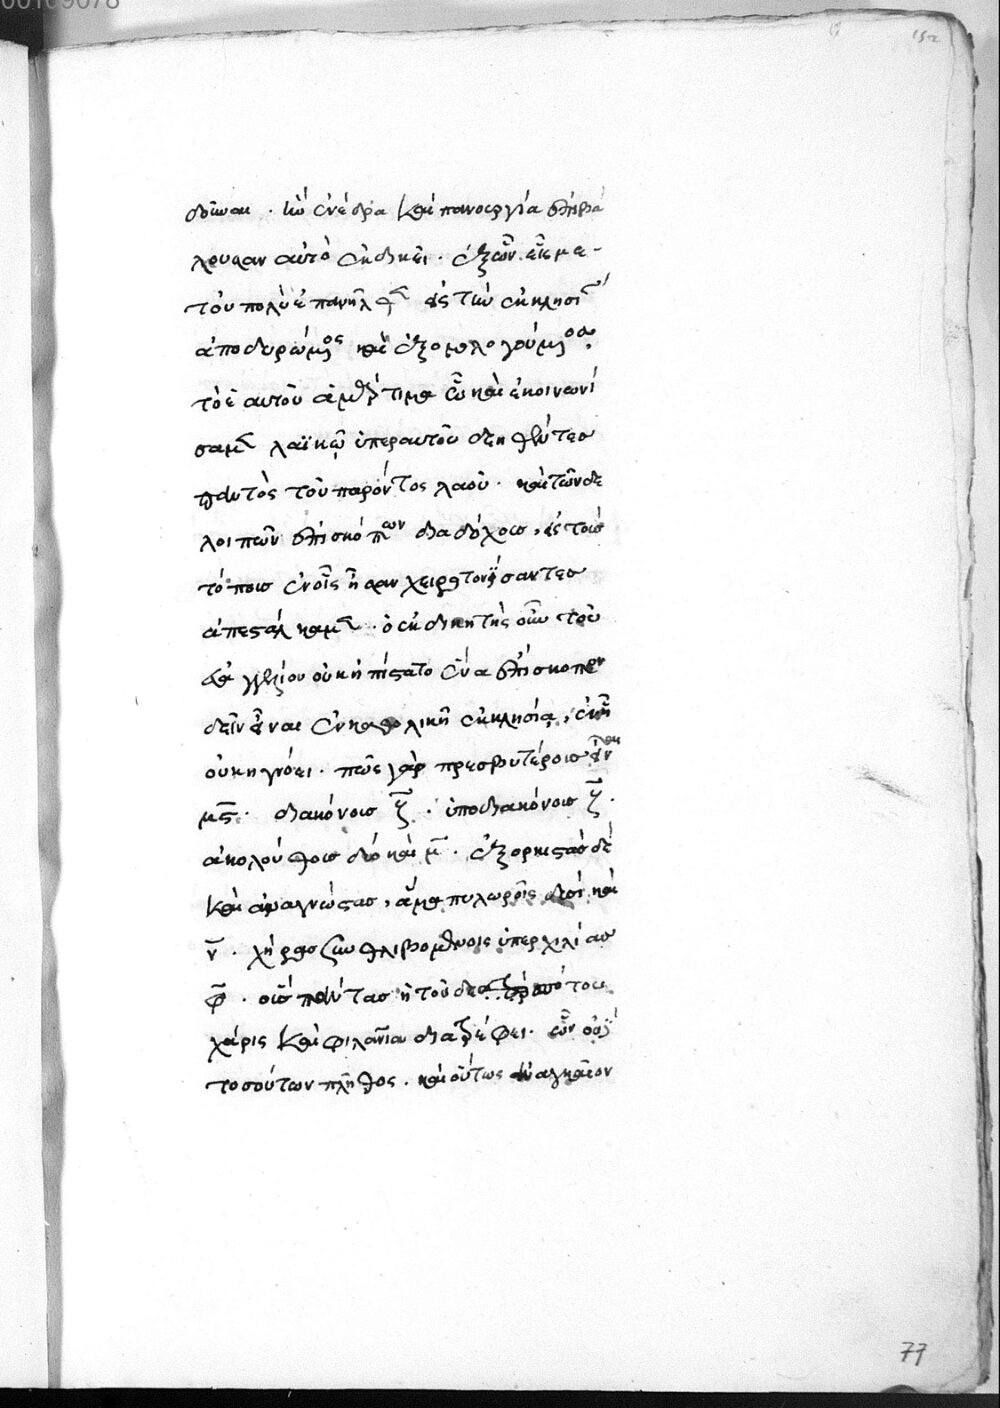 00109078
152
δοῦναι · ἣν ἐνέδρα καὶ πανουργία ἐπιβα
λοῦσαν αὐτῷ ἐκδικεῖ · ἐξ ὧν εἷς με
τ' οὐ πολὺ ἐπανῆλθ εἰς τὴν ἐκκλησί
ἀποδυρώμος καὶ ἐξομολογούμος
τὸ ἑαυτοῦ ἁμάρτημα ὧ καὶ ἐκοινωνή
σαμ λαϊκῶ ὑπὲρ αὐτοῦ δεηθέντος
παντὸς τοῦ παρόντος λαοῦ · καὶ τῶν δὲ
λοιπῶν ἐπισκόπων διαδόχους, εἰς τοὺς
τόπους ἐν οἷς ἦσαν χειροτονήσαντες
ἀπεστάλκαμ · ὁ ἐκδικητὴς οὖν τοῦ
εὐαγγελίου οὐκ ἠπίστατο ἕνα ἐπίσκοπον
δεῖν εἶναι ἐν καθολικῇ ἐκκλησίᾳ, ἐν ᾗ
οὐκ ἠγνόει · πῶς γὰρ πρεσβυτέρους εἶναι
μς · διακόνους ζ · ὑποδιακόνους ζ ·
ἀκολούθους δύο καὶ μ · ἐξορκιστὰς δὲ
καὶ ἀναγνώστας, ἅμα πυλωροῖς δυσὶ καὶ
ν · χήρας σὺν θλιβομένοις ὑπὲρ χιλίας
φ · οὓς πάντας ἡ τοῦ δεσπότου
χάρις καὶ φιλανία διατρέφει · ὧν οὐδὲ
τοσοῦτων πλῆθος · καὶ οὕτως ἀναγκαῖον
77